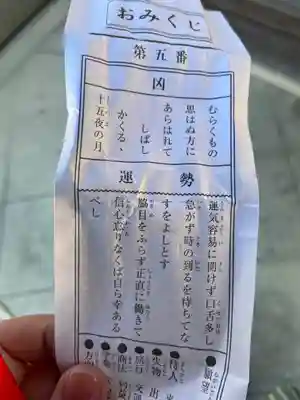 おみくじ
第五番
凶
むらくもの
思はぬ方に
あらはれて
しばし
かくるゝ
十五夜の月
運勢
運気容易に開けず口舌多し
急がず時の到るを待ちてな
すをよしとす
脇目をふらず正直に働きて
信心怠りなくば自ら幸ある
べし
●願望
●待人 来
●失物 出
●旅行 交
●商法
●学業
●方向